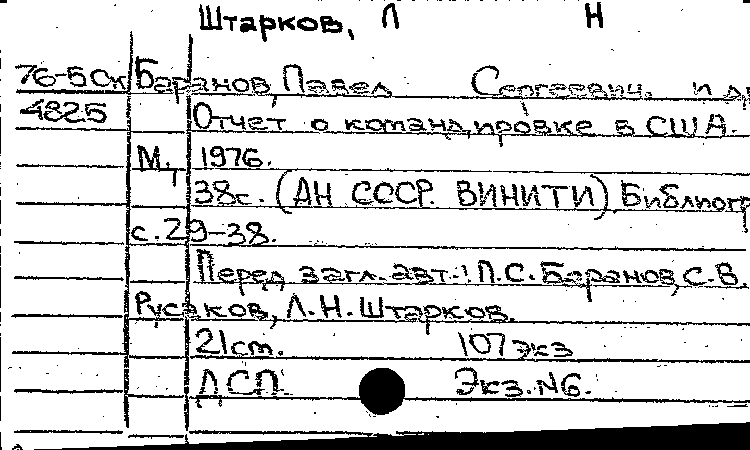 Штарков, Л Н
76-5 Ок Баранов, Павел Сергеевич. и др
4825 Отчет о командировке в США.
М., 1976.
38с. (АН СССР. ВИНИТИ). Библиогр
с. 29-38.
Перед загл. авт.: П.С. Баранов, С.В.
Русаков, Л.Н. Штарков.
21 см. 107 экз
ДСП Экз. №6.